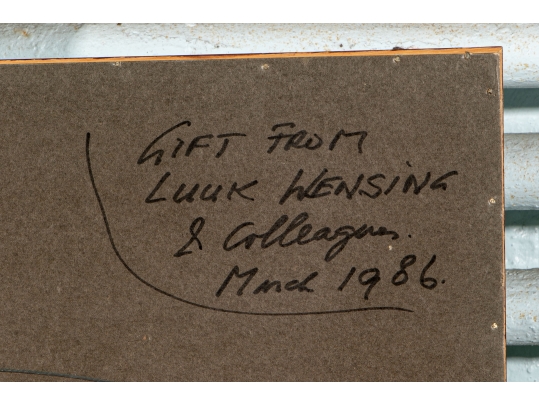 GIFT FROM
LUUK WENSING
& Colleagues.
March 1986.